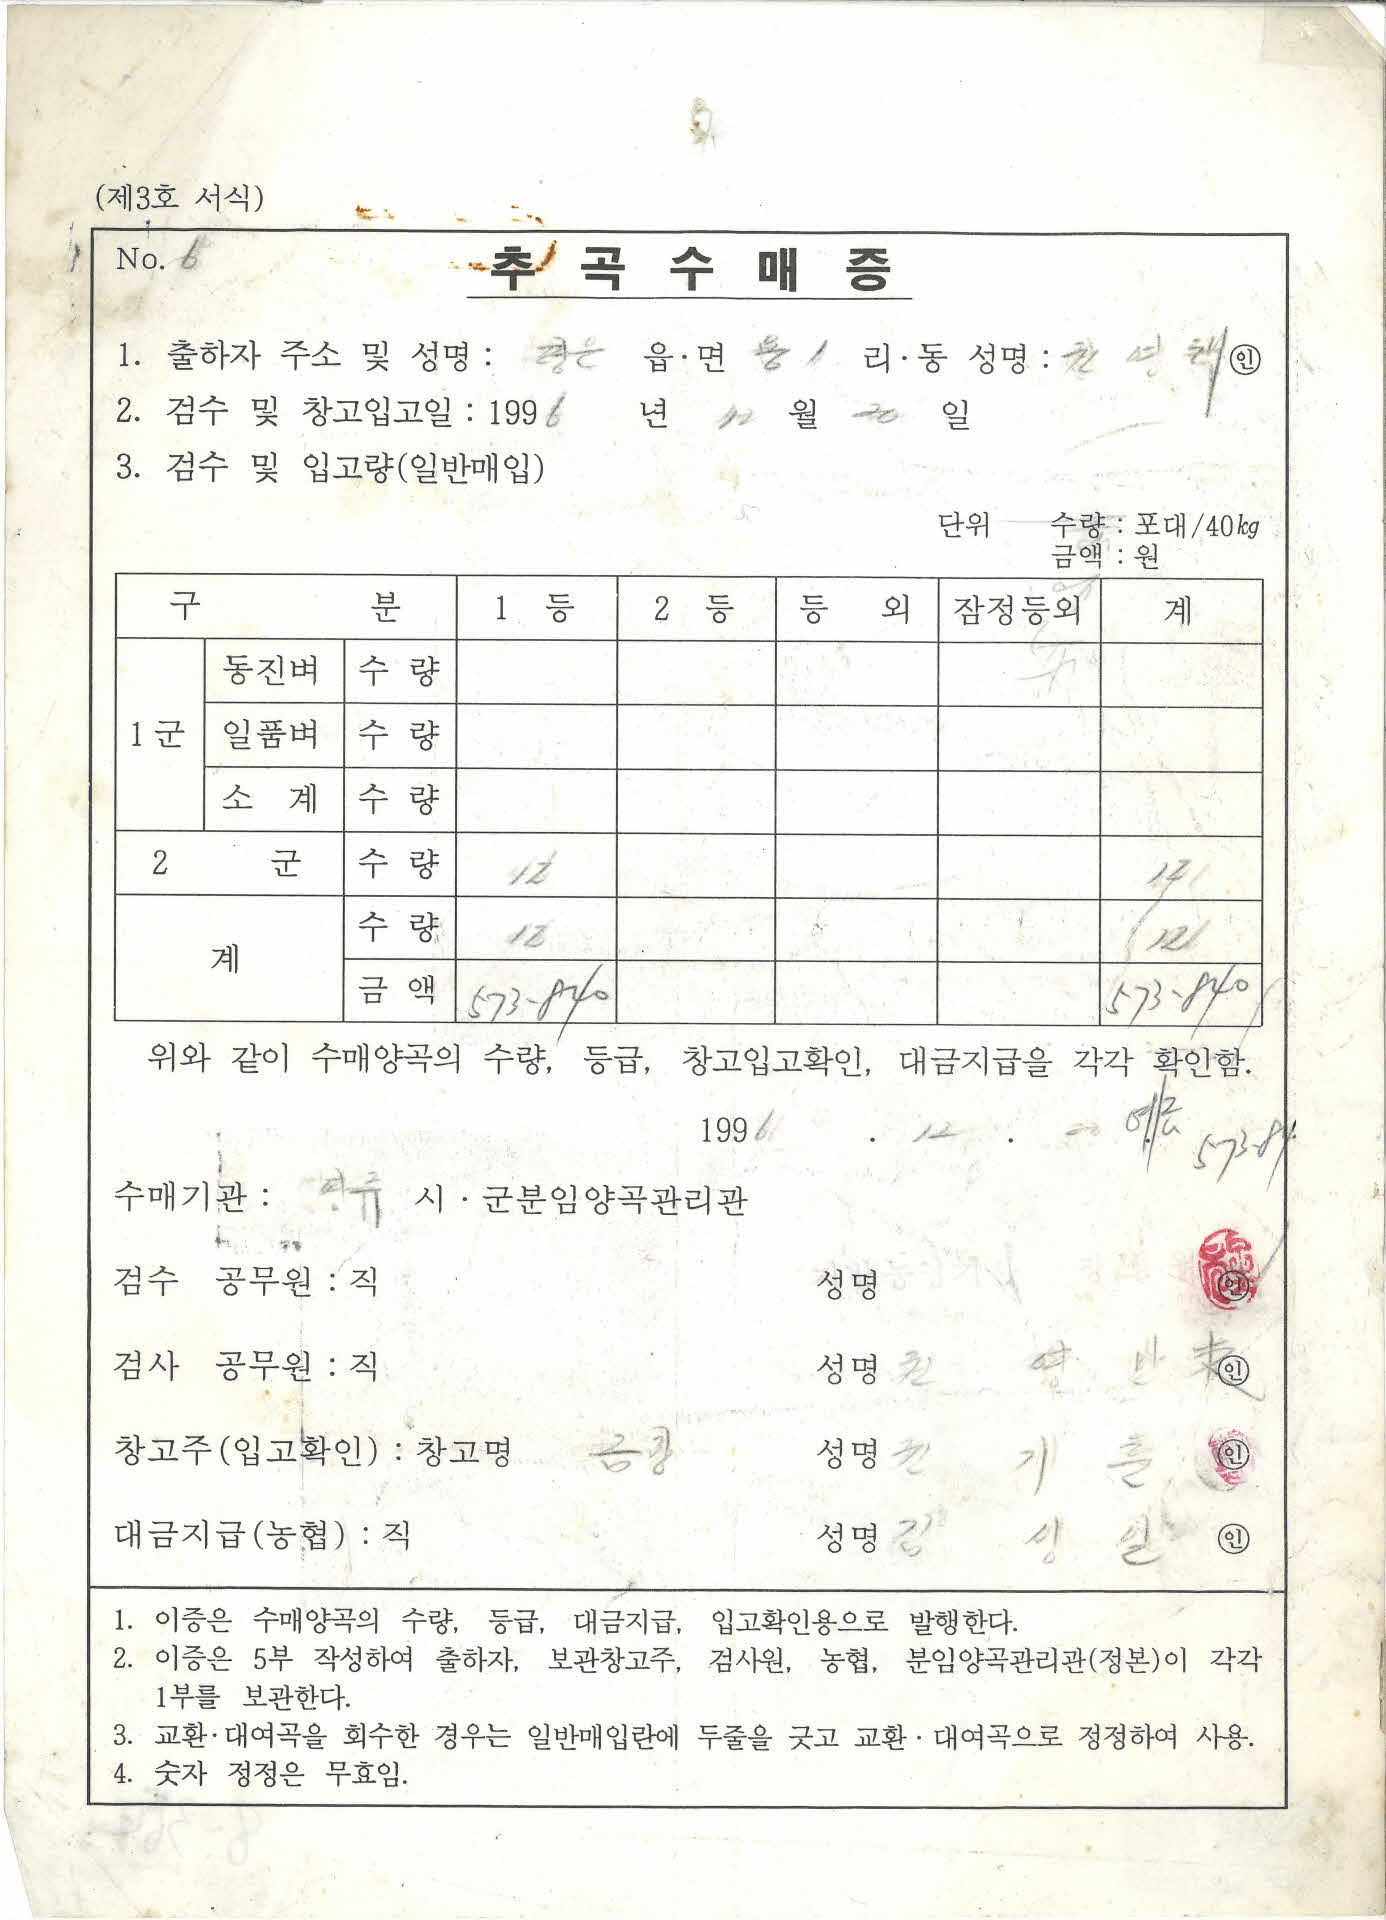 (제3호 서식)
No. 6
추곡수매증
1. 출하자 주소 및 성명 : 읍·면 용1 리·동 성명 : ㊞
2. 검수 및 창고입고일 : 1996 년 12 월 20 일
3. 검수 및 입고량(일반매입)
단위 수량 : 포대/40kg
금액 : 원
구 분 1 등 2 등 등 외 잠정등외 계
1군 동진벼 수 량
일품벼 수 량
소 계 수 량
2 군 수 량 12 12
계 수 량 12 12
금 액 573-840 573-840
위와 같이 수매양곡의 수량, 등급, 창고입고확인, 대금지급을 각각 확인함.
1996 . 12 . 20 예금
573-84
수매기관 : 시·군분임양곡관리관
검수 공무원 : 직 성명 ㊞
검사 공무원 : 직 성명 ㊞
창고주(입고확인) : 창고명 금광 성명 권 기 흘 ㊞
대금지급(농협) : 직 성명 김 상 일 ㊞
1. 이증은 수매양곡의 수량, 등급, 대금지급, 입고확인용으로 발행한다.
2. 이증은 5부 작성하여 출하자, 보관창고주, 검사원, 농협, 분임양곡관리관(정본)이 각각
1부를 보관한다.
3. 교환·대여곡을 회수한 경우는 일반매입란에 두줄을 긋고 교환·대여곡으로 정정하여 사용.
4. 숫자 정정은 무효임.